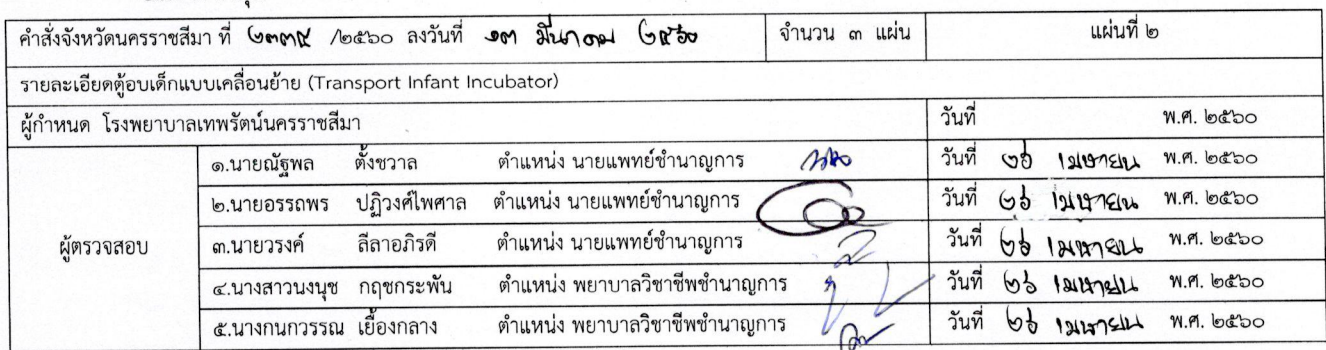 คำสั่งจังหวัดนครราชสีมา ที่ ๒๓๓๙ /๒๕๖๐ ลงวันที่ ๑๓ มีนาคม ๒๕๖๐ จำนวน ๓ แผ่น แผ่นที่ ๒
รายละเอียดตู้อบเด็กแบบเคลื่อนย้าย (Transport Infant Incubator)
ผู้กำหนด โรงพยาบาลเทพรัตน์นครราชสีมา วันที่ พ.ศ. ๒๕๖๐
๑.นายณัฐพล ตั้งชวาล ตำแหน่ง นายแพทย์ชำนาญการ วันที่ ๒๖ เมษายน พ.ศ. ๒๕๖๐
๒.นายอรรถพร ปฏิวงศ์ไพศาล ตำแหน่ง นายแพทย์ชำนาญการ วันที่ ๒๖ เมษายน พ.ศ. ๒๕๖๐
ผู้ตรวจสอบ ๓.นายวรงค์ ลีลาอภิรดี ตำแหน่ง นายแพทย์ชำนาญการ วันที่ ๒๖ เมษายน พ.ศ. ๒๕๖๐
๔.นางสาวนงนุช กฤชกระพัน ตำแหน่ง พยาบาลวิชาชีพชำนาญการ วันที่ ๒๖ เมษายน พ.ศ. ๒๕๖๐
๕.นางกนกวรรณ เยื้องกลาง ตำแหน่ง พยาบาลวิชาชีพชำนาญการ วันที่ ๒๖ เมษายน พ.ศ. ๒๕๖๐